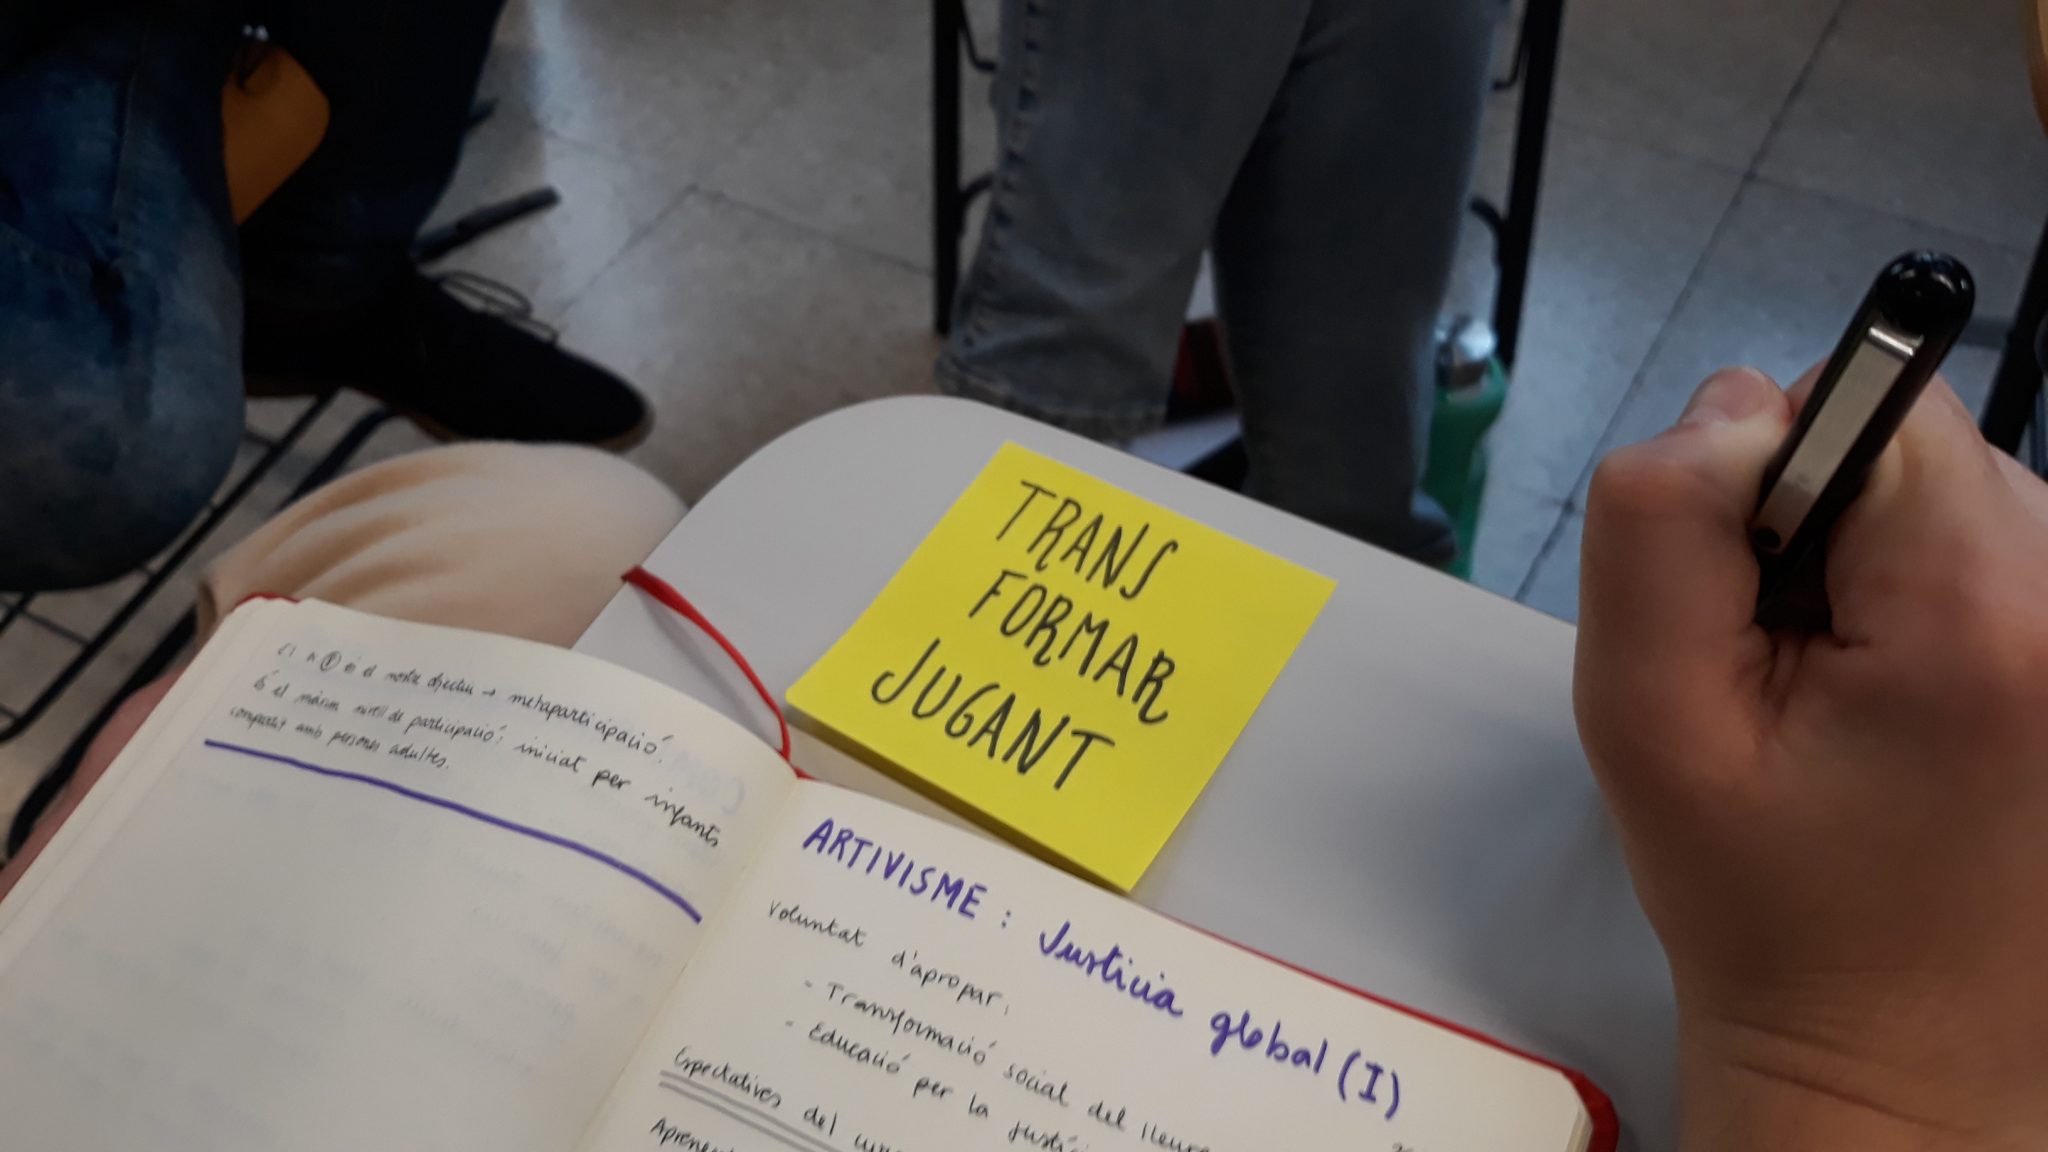 TRANS
FORMAR
JUGANT
és el nostre objectiu → metaparticipació.
és el màxim nivell de participació: iniciat per infants
compartit amb persones adultes.
ARTIVISME: Justícia global (I)
Voluntat d'apropar:
- Transformació social del lleure
- Educació per la justíci
Expectatives del